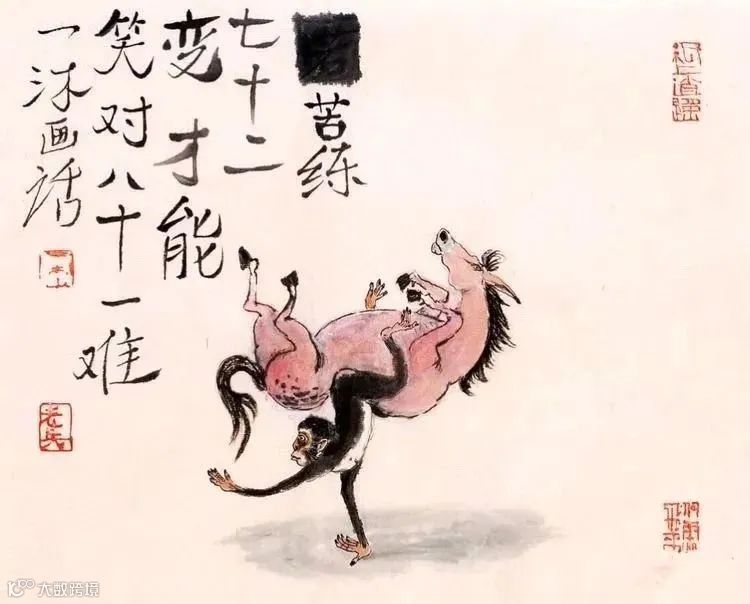 苦练
七十二
变才能
笑对八十一难
一沐画话
大数跨境